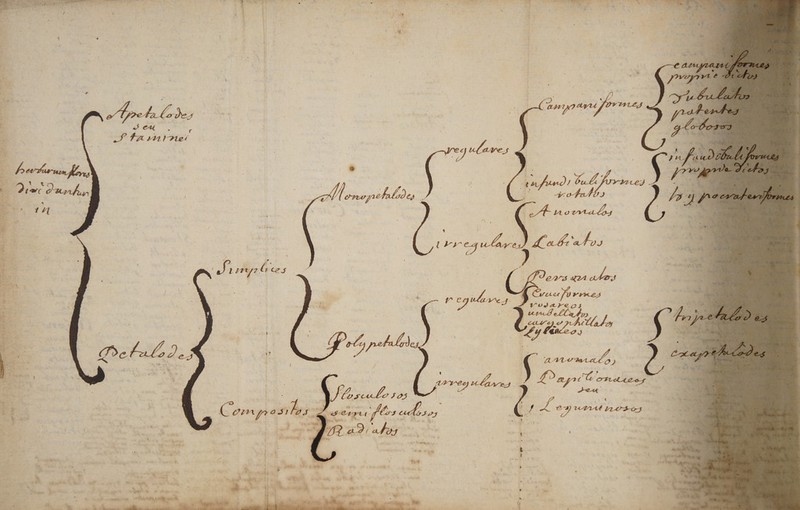 herbarum flores
dividuntur
in
Apetalodes
seu
Staminei
Petalodes
Simplices
Compositos
Monopetalodes
Polypetalodes
Flosculosos
semiflosculosos
Radiatos
regulares
irregulares
regulares
irregulares
Campaniformes
infundibuliformes
rotatos
Anomalos
Labiatos
Personatos
Cruciformes
rosaceos
umbellatos
caryophillatos
anomalos
Papilionaceos
seu
Leguminosos
campaniformes
proprie dictos
Tubulatos
patentes
globosos
infundibuliformes
proprie dictos
hypocrateriformes
tripetalodes
exapetalodes